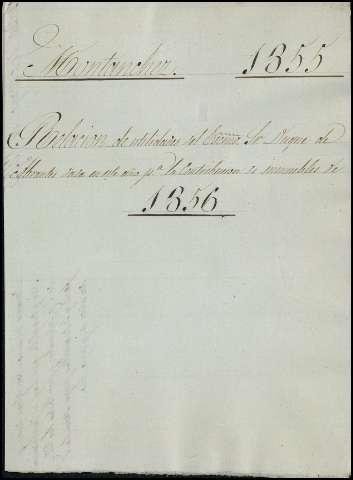 Montanchez. 1855
Relacion de utilidades del Excmo. Sr. Duque de
Abrantes dada en este año pª. la Contribucion de inmuebles de
1856.